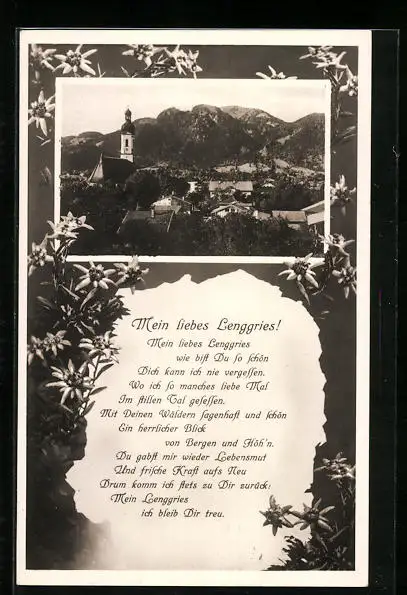 Mein liebes Lenggries!
Mein liebes Lenggries
wie bist Du so schön
Dich kann ich nie vergessen.
Wo ich so manches liebe Mal
Im stillen Tal gesessen.
Mit Deinen Wäldern sagenhaft und schön
Ein herrlicher Blick
von Bergen und Höh'n.
Du gabst mir wieder Lebensmut
Und frische Kraft aufs Neu
Drum komm ich stets zu Dir zurück:
Mein Lenggries
ich bleib Dir treu.